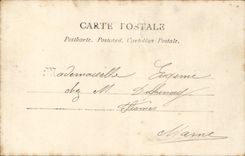 CARTE POSTALE
Postkarte, Postcard, Cartolina Postale.
Mademoiselle Eugenie
chez M.
Marne